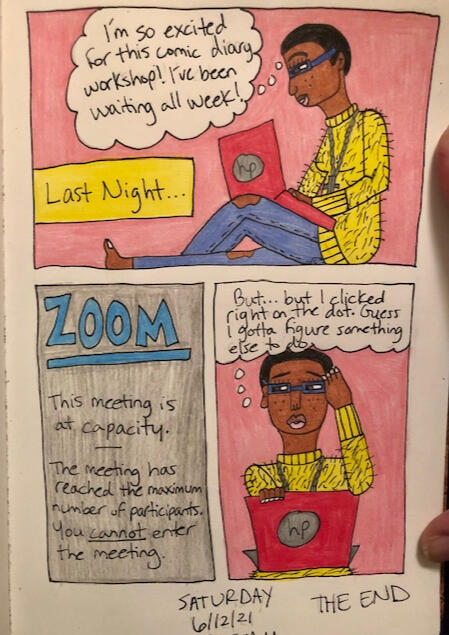 I'm so excited
for this comic diary
workshop! I've been
waiting all week!
hp
Last Night...
ZOOM
This meeting is
at capacity.
The meeting has
reached the maximum
number of participants.
You cannot enter
the meeting.
But... but I clicked
right on the dot. Guess
I gotta figure something
else to do.
hp
SATURDAY
6/12/21
THE END